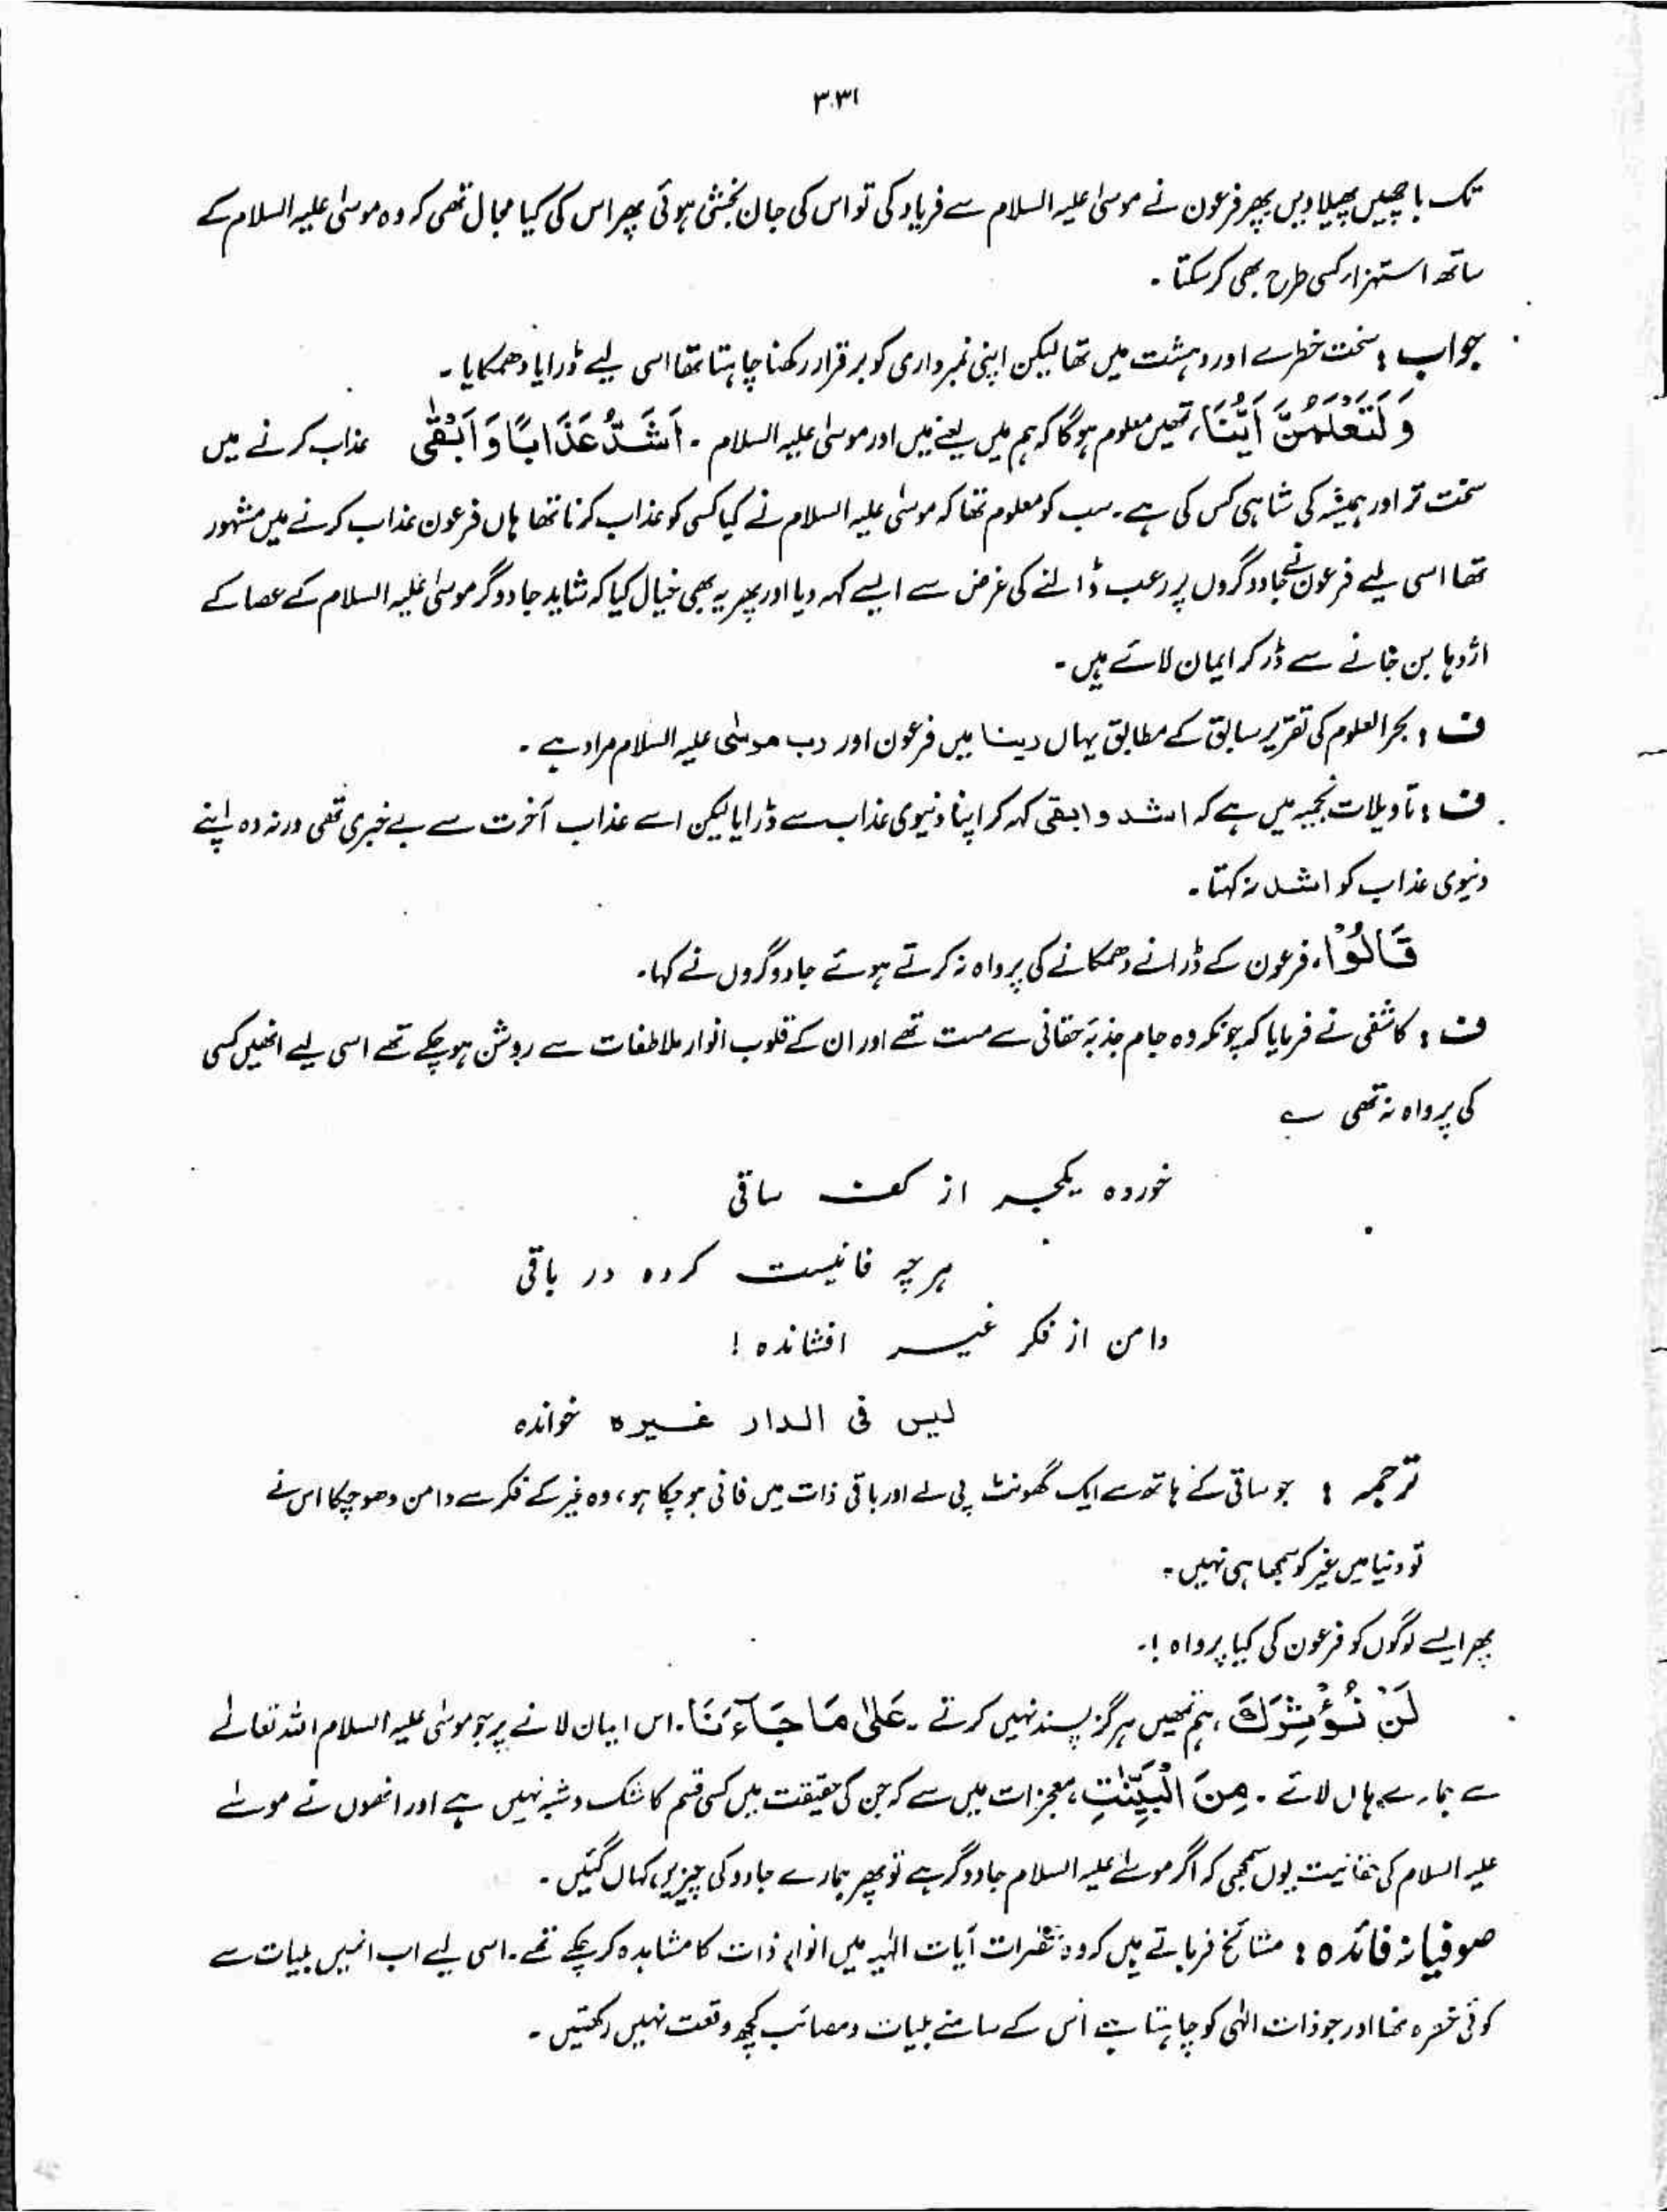 ۳۰۳۱
تک باچھیں پھیلا دیں پھر فرعون نے موسیٰ علیہ السلام سے فریاد کی تو اس کی جان بخشی ہوئی پھر اس کی کیا مجال تھی کہ وہ موسیٰ علیہ السلام کے
ساتھ استہزار کسی طرح بھی کر سکتا ۔
جواب : سخت خطرے اور دہشت میں تھا لیکن اپنی نمبرداری کو برقرار رکھنا چاہتا تھا اسی لیے ڈرایا دھمکایا ۔
وَلَتَعْلَمُنَّ اَيُّنَا ، تمھیں معلوم ہوگا کہ ہم میں یعنے میں اور موسیٰ علیہ السلام ۔ اَشَدُّ عَذَابًا وَّ اَبْقٰى عذاب کرنے میں
سخت تر اور ہمیشہ کی شاہی کس کی ہے ۔ سب کو معلوم تھا کہ موسیٰ علیہ السلام نے کیا کسی کو عذاب کرنا تھا ہاں فرعون عذاب کرنے میں مشہور
تھا اسی لیے فرعون نے جادوگروں پر رعب ڈالنے کی غرض سے ایسے کہہ دیا اور پھر یہ بھی خیال کیا کہ شاید جادوگر موسیٰ علیہ السلام کے عصا کے
اژدہا بن جانے سے ڈر کر ایمان لائے ہیں ۔
ف : بحر العلوم کی تقریر سابق کے مطابق یہاں دینا میں فرعون اور رب موسٰی علیہ السلام مراد ہے ۔
ف : تاویلات نجمیہ میں ہے کہ اشد و ابقی کہہ کر اپنا دنیوی عذاب سے ڈرایا لیکن اسے عذاب آخرت سے بے خبری تھی ورنہ وہ اپنے
دنیوی عذاب کو اشد نہ کہتا ۔
قَالُوْا ، فرعون کے ڈرانے دھمکانے کی پرواہ نہ کرتے ہوئے جادوگروں نے کہا ۔
ف : کاشفی نے فرمایا کہ چونکہ وہ جام جذبۂ حقانی سے مست تھے اور ان کے قلوب انوار ملاطفات سے روشن ہو چکے تھے اسی لیے انھیں کسی
کی پرواہ نہ تھی ؎
خوردہ یکجرعہ از کف ساقی
ہر چہ فانیست کردہ در باقی
دامن از فکر غیر افشاندہ !
لیس فی الدار غیرہ خواندہ
ترجمہ : جو ساقی کے ہاتھ سے ایک گھونٹ پی لے اور باقی ذات میں فانی ہو چکا ہو ، وہ غیر کے فکر سے دامن دھو چکا اس نے
تو دنیا میں غیر کو سمجھا ہی نہیں ۔
پھر ایسے لوگوں کو فرعون کی کیا پرواہ !۔
لَنْ نُّؤْثِرَكَ ، ہم تمھیں ہرگز پسند نہیں کرتے ۔ عَلٰى مَا جَآءَنَا ۔ اس ایمان لانے پر جو موسٰی علیہ السلام اللہ تعالےٰ
سے ہمارے ہاں لائے ۔ مِنَ الْبَيِّنٰتِ ، معجزات میں سے کہ جن کی حقیقت میں کسی قسم کا شک و شبہ نہیں ہے اور انھوں نے موسےٰ
علیہ السلام کی حقانیت یوں سمجھی کہ اگر موسےٰ علیہ السلام جادوگر ہے تو پھر ہمارے جادو کی چیزیں کہاں گئیں ۔
صوفیانہ فائدہ : مشائخ فرماتے ہیں کہ وہ حضرات آیات الٰہیہ میں انوار ذات کا مشاہدہ کر چکے تھے ۔ اسی لیے اب انہیں بلیات سے
کوئی خطرہ نہ تھا اور جو ذات الٰہی کو چاہتا ہے اس کے سامنے بلیات و مصائب کچھ وقعت نہیں رکھتیں ۔